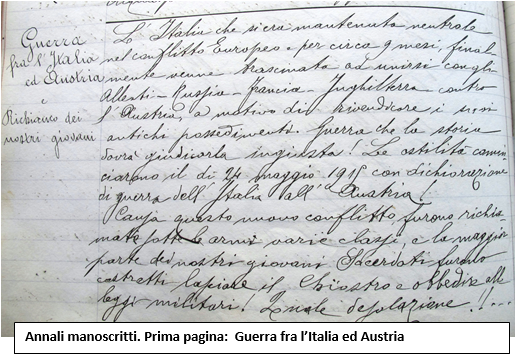 Guerra
fra l'Italia
ed Austria
e
Richiamo dei
nostri giovani
L'Italia che si era mantenuta neutrale
nel conflitto Europeo e per circa 9 mesi, final-
mente venne trascinata ad unirsi con gli
Alleati - Russia - Francia - Inghilterra - contro
l'Austria, a motivo di rivendicare i suoi
antichi possedimenti. Guerra che la storia
dovrà giudicarla ingiusta! Le ostilità comin-
ciarono il dì 24 maggio 1915 con dichiarazione
di guerra dell'Italia all'Austria!
Causa questo nuovo conflitto furono richia-
mate sotto le armi varie classi, e la maggior
parte dei nostri giovani Sacerdoti furono
costretti lasciare il Chiostro e obbedire alle
leggi militari! Quale desolazione!!...
Annali manoscritti. Prima pagina: Guerra fra l'Italia ed Austria